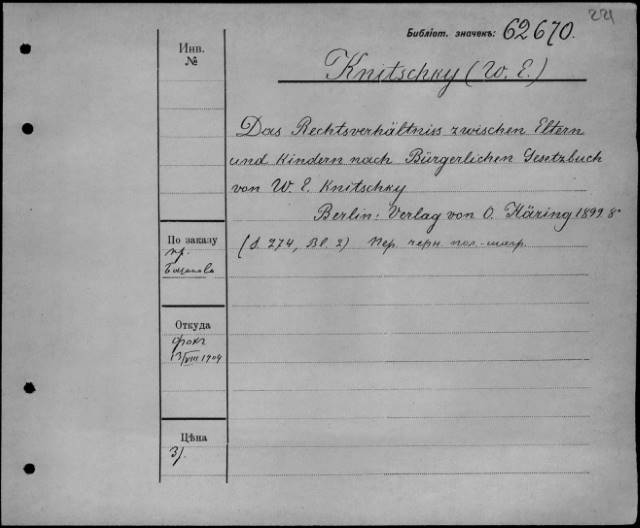 221
Библіот. значекъ: 62670.
Инв.
№
Knitschky (W. E.)
Das Rechtsverhältniss zwischen Eltern
und Kindern nach Bürgerlichen Gesetzbuch
von W. E. Knitschky
Berlin: Verlag von O. Häring 1899 8°
(S. 274, Bl. 2) Пер. черн. пол.-шагр.
По заказу
пр.
Откуда
Фокъ
13/VIII 1904
Цѣна
3/.